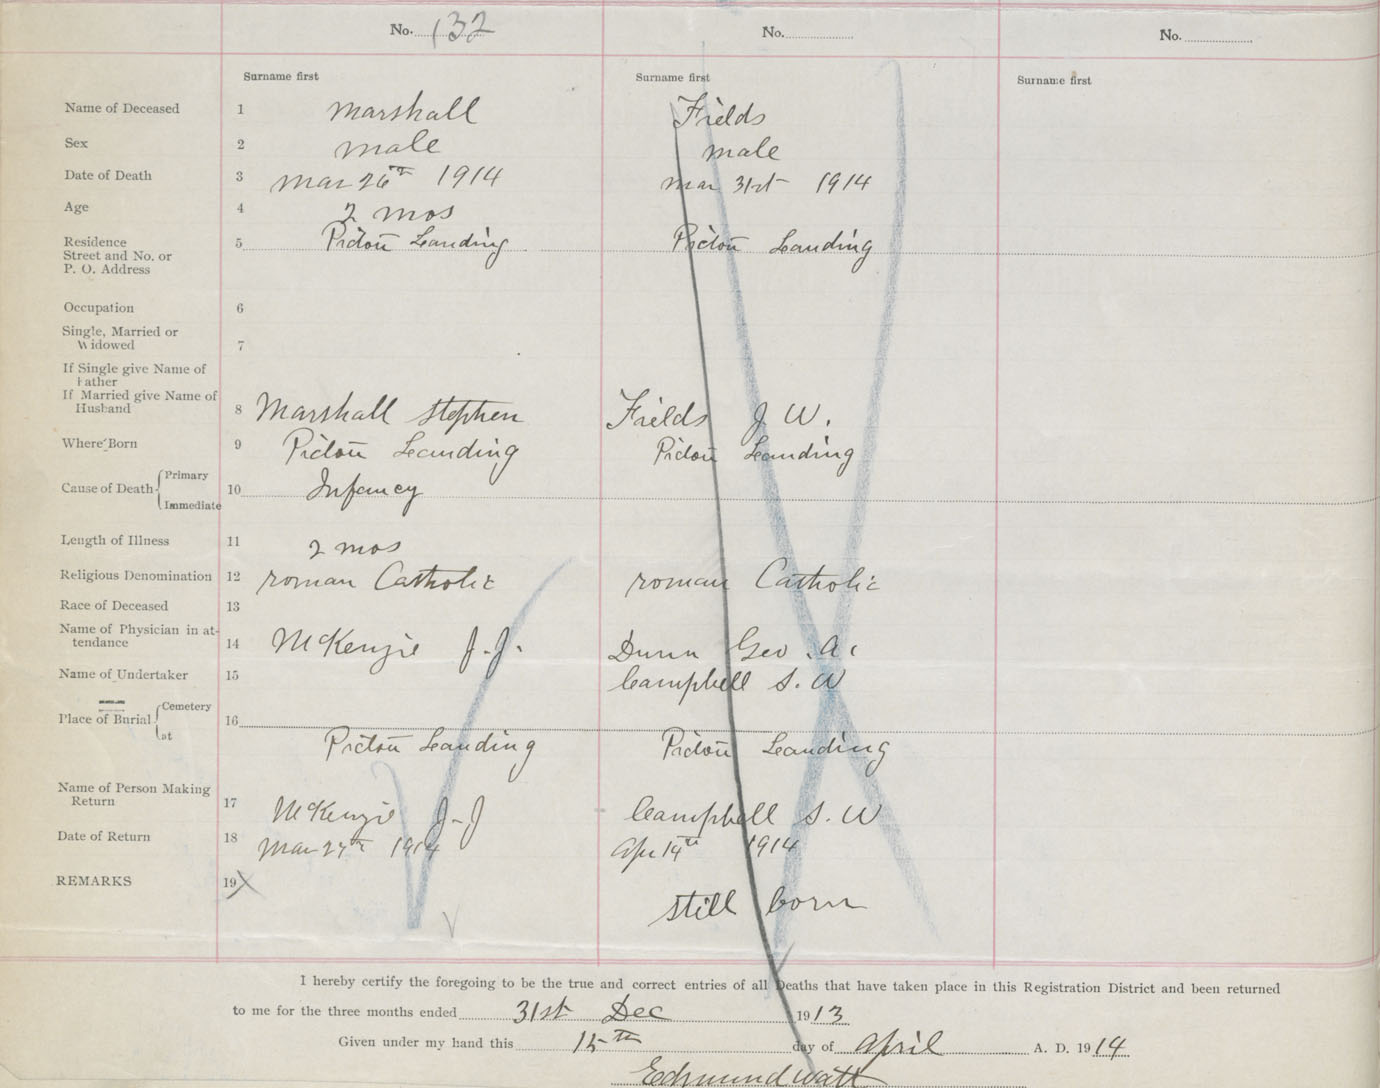 No. 132 No. No.
Surname first Surname first Surname first
Name of Deceased 1 Marshall Fields
Sex 2 male male
Date of Death 3 Mar 26th 1914 Mar 31st 1914
Age 4 2 mos
Residence
Street and No. or
P. O. Address 5 Pictou Landing Pictou Landing
Occupation 6
Single, Married or
Widowed 7
If Single give Name of
Father
If Married give Name of
Husband 8 Marshall Stephen Fields J W.
Where Born 9 Pictou Landing Pictou Landing
Cause of Death Primary
Immediate 10 Infancy
Length of Illness 11 2 mos
Religious Denomination 12 roman Catholic roman Catholic
Race of Deceased 13
Name of Physician in at-
tendance 14 McKenzie J. J. Dunn Geo. A.
Name of Undertaker 15 Campbell S. W
Place of Burial Cemetery
at 16 Pictou Landing Pictou Landing
Name of Person Making
Return 17 McKenzie J-J Campbell S. W
Date of Return 18 Mar 27th 1914 Apr 14th 1914
REMARKS 19 X still born
I hereby certify the foregoing to be the true and correct entries of all Deaths that have taken place in this Registration District and been returned
to me for the three months ended 31st Dec 1913
Given under my hand this 15th day of April A. D. 1914
Edmund Watt